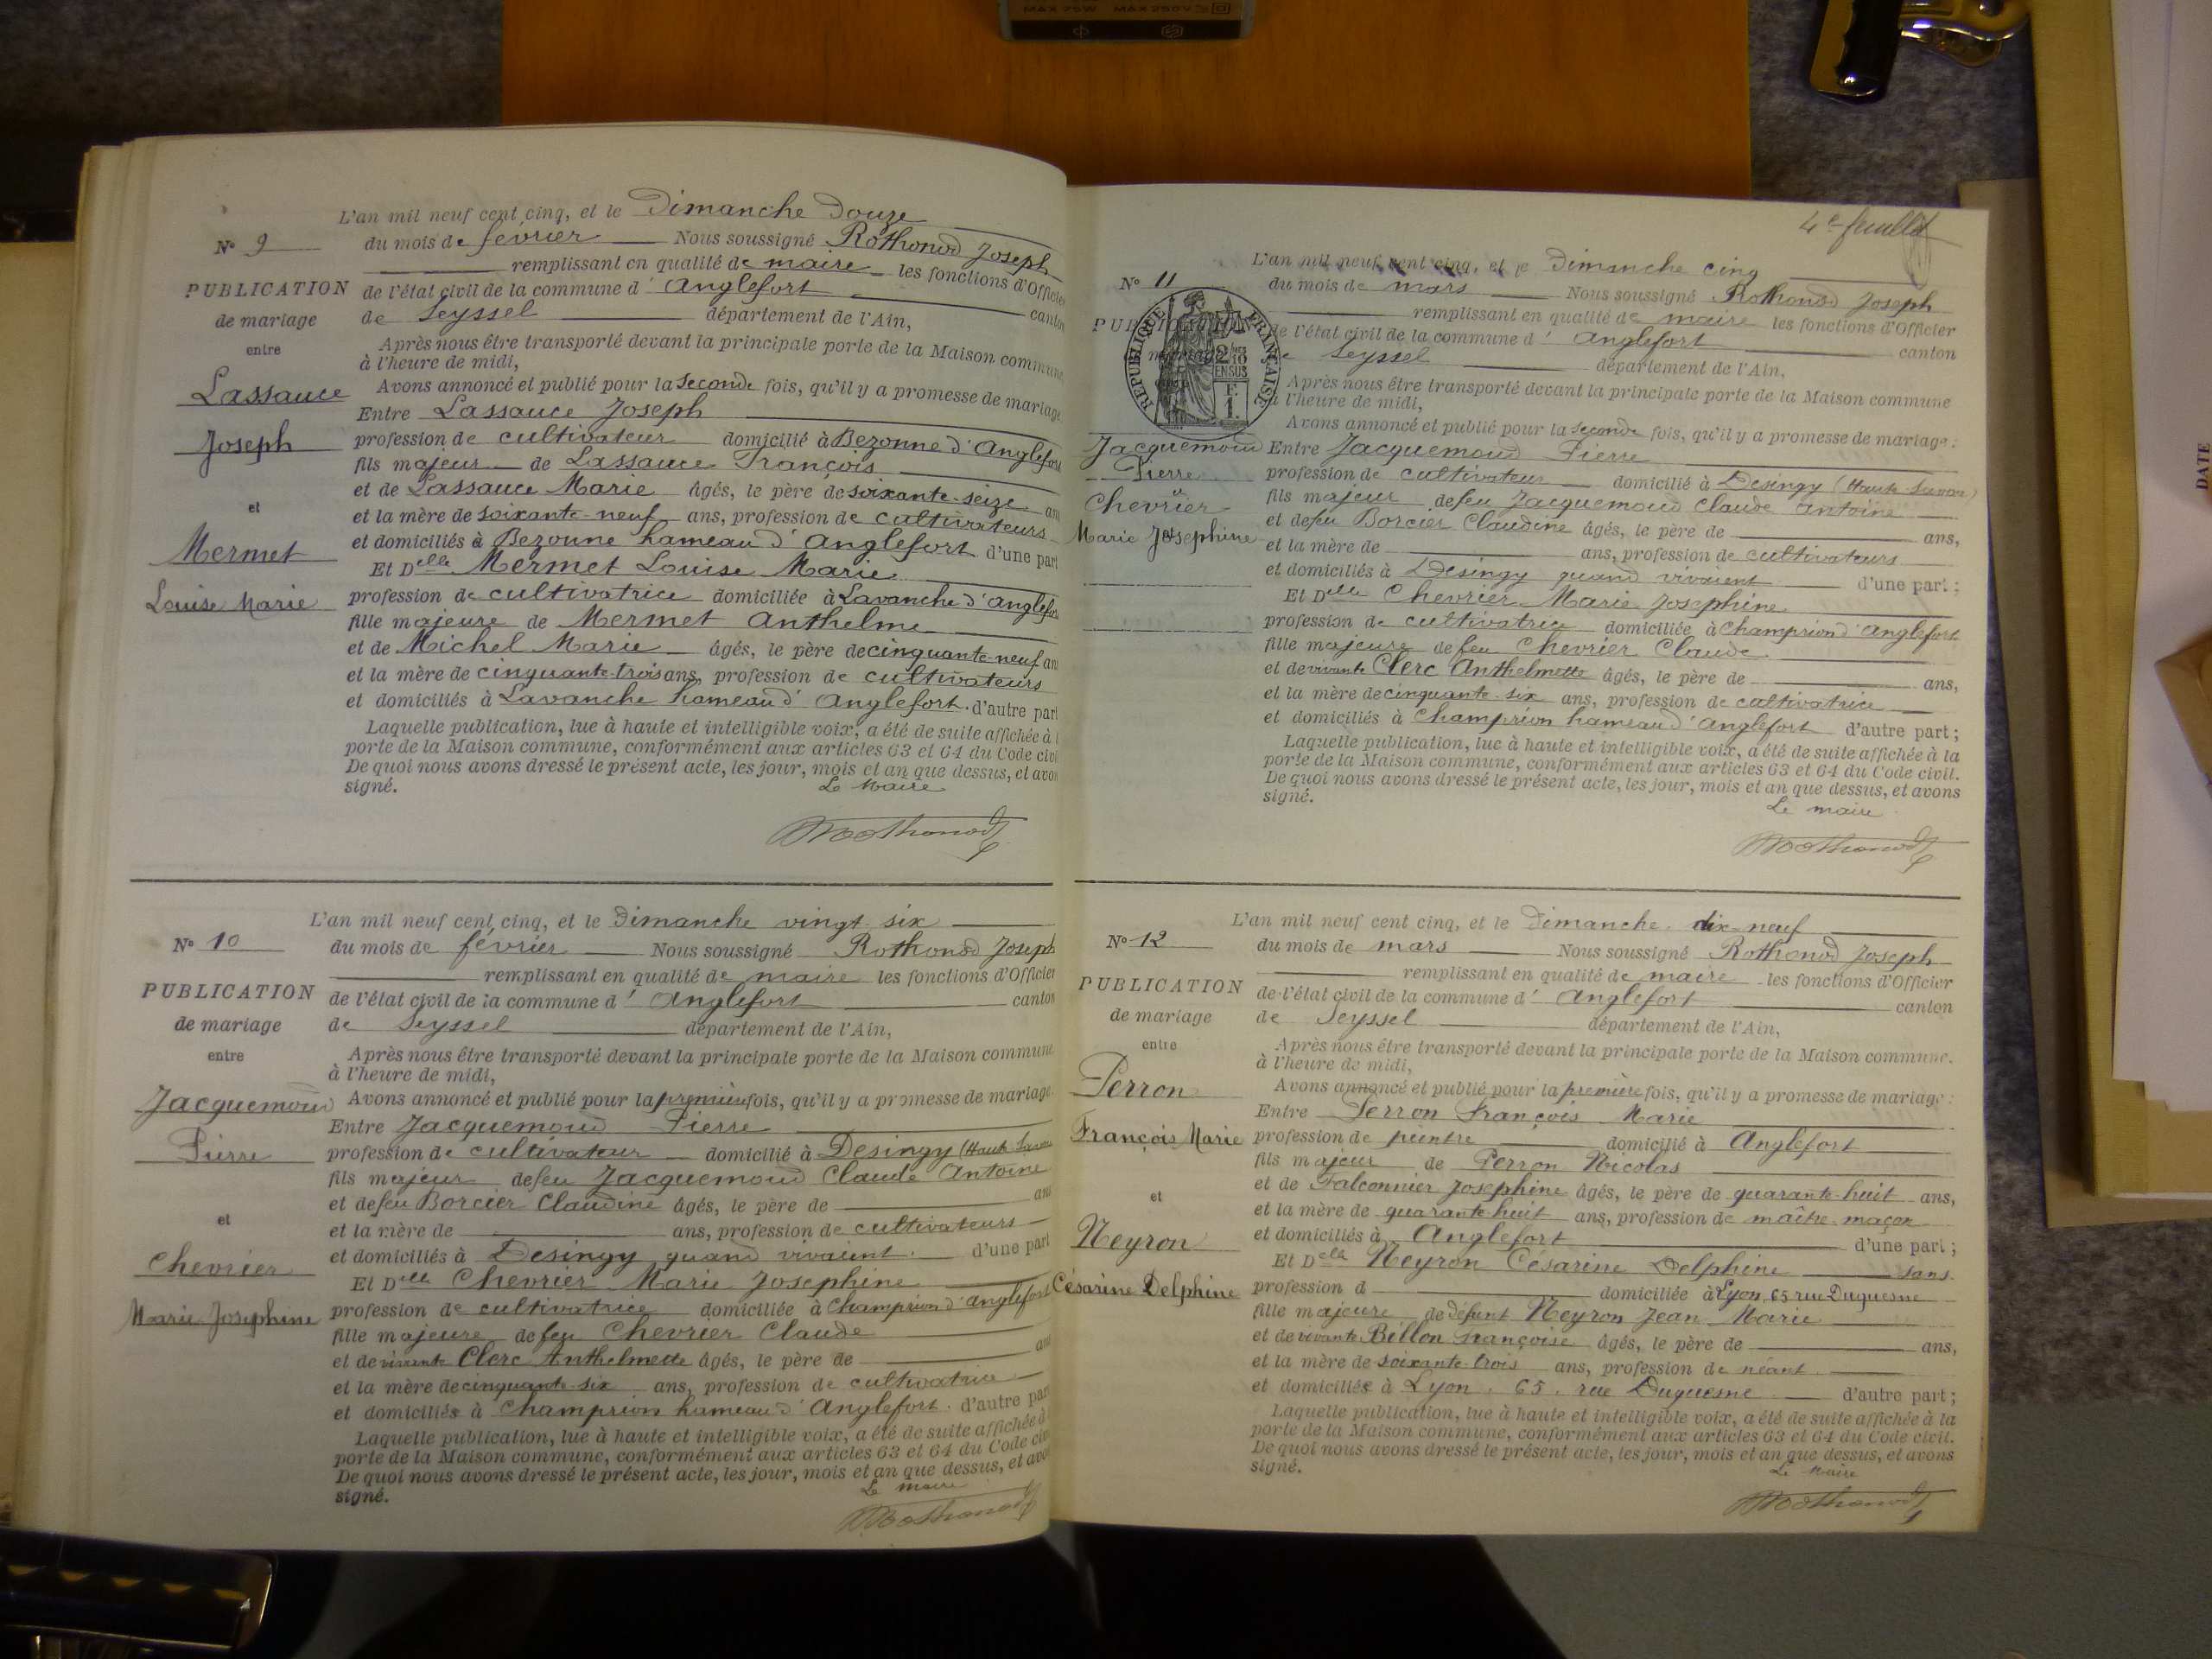 MAX 75W MAX 250V
L'an mil neuf cent cinq, et le Dimanche Douze
N° 9
du mois de février Nous soussigné Rothonod Joseph
remplissant en qualité de maire les fonctions d'Officier
PUBLICATION
de l'état civil de la commune d' Anglefort canton
de mariage
de Seyssel département de l'Ain,
entre
Après nous être transporté devant la principale porte de la Maison commune
à l'heure de midi,
Lassauce
Avons annoncé et publié pour la Seconde fois, qu'il y a promesse de mariage
Entre Lassauce Joseph
Joseph
profession de cultivateur domicilié à Bezonne d'Anglefort
fils majeur de Lassauce François
et de Lassauce Marie âgés, le père de soixante-seize ans
et
et la mère de soixante-neuf ans, profession de cultivateurs
et domiciliés à Bezonne hameau d'Anglefort d'une part
Mermet
Et Delle Mermet Louise Marie
Louise Marie
profession de cultivatrice domiciliée à Lavanche d'Anglefort
fille majeure de Mermet Anthelme
et de Michel Marie âgés, le père de cinquante-neuf ans
et la mère de cinquante-trois ans, profession de cultivateurs
et domiciliés à Lavanche hameau d'Anglefort. d'autre part
Laquelle publication, lue à haute et intelligible voix, a été de suite affichée à l
porte de la Maison commune, conformément aux articles 63 et 64 du Code civi
De quoi nous avons dressé le présent acte, les jour, mois et an que dessus, et avon
signé.
Le Maire
Rothonod
L'an mil neuf cent cinq, et le Dimanche vingt-six
N° 10
du mois de février Nous soussigné Rothonod Joseph
remplissant en qualité de maire les fonctions d'Officier
PUBLICATION
de l'état civil de la commune d' Anglefort canton
de mariage
de Seyssel département de l'Ain,
entre
Après nous être transporté devant la principale porte de la Maison commune
à l'heure de midi,
Jacquemoud
Avons annoncé et publié pour la première fois, qu'il y a promesse de mariage
Entre Jacquemoud Pierre
Pierre
profession de cultivateur domicilié à Desingy (Haute Savoie
fils majeur de feu Jacquemoud Claude Antoine
et de feu Borcier Claudine âgés, le père de ans
et
et la mère de ans, profession de cultivateurs
et domiciliés à Desingy quand vivaient. d'une part
Chevrier
Et Delle Chevrier Marie Josephine
Marie Josephine
profession de cultivatrice domiciliée à Champrion d'Anglefort
fille majeure de feu Chevrier Claude
et de vivante Clerc Anthelmette âgés, le père de ans
et la mère de cinquante-six ans, profession de cultivatrice
et domiciliés à Champrion hameau d'Anglefort. d'autre part
Laquelle publication, lue à haute et intelligible voix, a été de suite affichée à
porte de la Maison commune, conformément aux articles 63 et 64 du Code civ
De quoi nous avons dressé le présent acte, les jour, mois et an que dessus, et avo
signé.
Le maire
Rothonod
4e feuillet
L'an mil neuf cent cinq, et le Dimanche cinq
N° 11
du mois de mars Nous soussigné Rothonod Joseph
remplissant en qualité de maire les fonctions d'Officier
PUBLICATION
de l'état civil de la commune d' Anglefort canton
de mariage
de Seyssel département de l'Ain,
RÉPUBLIQUE FRANÇAISE
2/10 EN SUS
F. 1
Après nous être transporté devant la principale porte de la Maison commune
à l'heure de midi,
Avons annoncé et publié pour la seconde fois, qu'il y a promesse de mariage :
Jacquemoud
Entre Jacquemoud Pierre
Pierre
profession de cultivateur domicilié à Desingy (Haute Savoie)
et
fils majeur de feu Jacquemoud Claude Antoine
Chevrier
et de feu Borcier Claudine âgés, le père de ans,
Marie Josephine
et la mère de ans, profession de cultivateurs
et domiciliés à Desingy quand vivaient d'une part ;
Et Delle Chevrier Marie Josephine
profession de cultivatrice domiciliée à Champrion d'Anglefort
fille majeure de feu Chevrier Claude
et de vivante Clerc Anthelmette âgés, le père de ans,
et la mère de cinquante-six ans, profession de cultivatrice
et domiciliés à Champrion hameau d'Anglefort d'autre part ;
Laquelle publication, lue à haute et intelligible voix, a été de suite affichée à la
porte de la Maison commune, conformément aux articles 63 et 64 du Code civil.
De quoi nous avons dressé le présent acte, les jour, mois et an que dessus, et avons
signé.
Le maire
Rothonod
L'an mil neuf cent cinq, et le Dimanche dix-neuf
N° 12
du mois de mars Nous soussigné Rothonod Joseph
remplissant en qualité de maire les fonctions d'Officier
PUBLICATION
de l'état civil de la commune d' Anglefort canton
de mariage
de Seyssel département de l'Ain,
entre
Après nous être transporté devant la principale porte de la Maison commune.
à l'heure de midi,
Perron
Avons annoncé et publié pour la première fois, qu'il y a promesse de mariage :
Entre Perron François Marie
François Marie
profession de peintre domicilié à Anglefort
fils majeur de Perron Nicolas
et
et de Falconnier Josephine âgés, le père de quarante-huit ans,
et la mère de quarante-huit ans, profession de maître maçon
Neyron
et domiciliés à Anglefort d'une part ;
Et Delle Neyron Césarine Delphine sans
Césarine Delphine
profession d domiciliée à Lyon, 65 rue Duquesne
fille majeure de défunt Neyron Jean Marie
et de vivante Billon Françoise âgés, le père de ans,
et la mère de soixante-trois ans, profession de néant
et domiciliés à Lyon, 65, rue Duquesne d'autre part ;
Laquelle publication, lue à haute et intelligible voix, a été de suite affichée à la
porte de la Maison commune, conformément aux articles 63 et 64 du Code civil.
De quoi nous avons dressé le présent acte, les jour, mois et an que dessus, et avons
signé.
Le Maire
Rothonod
DATE